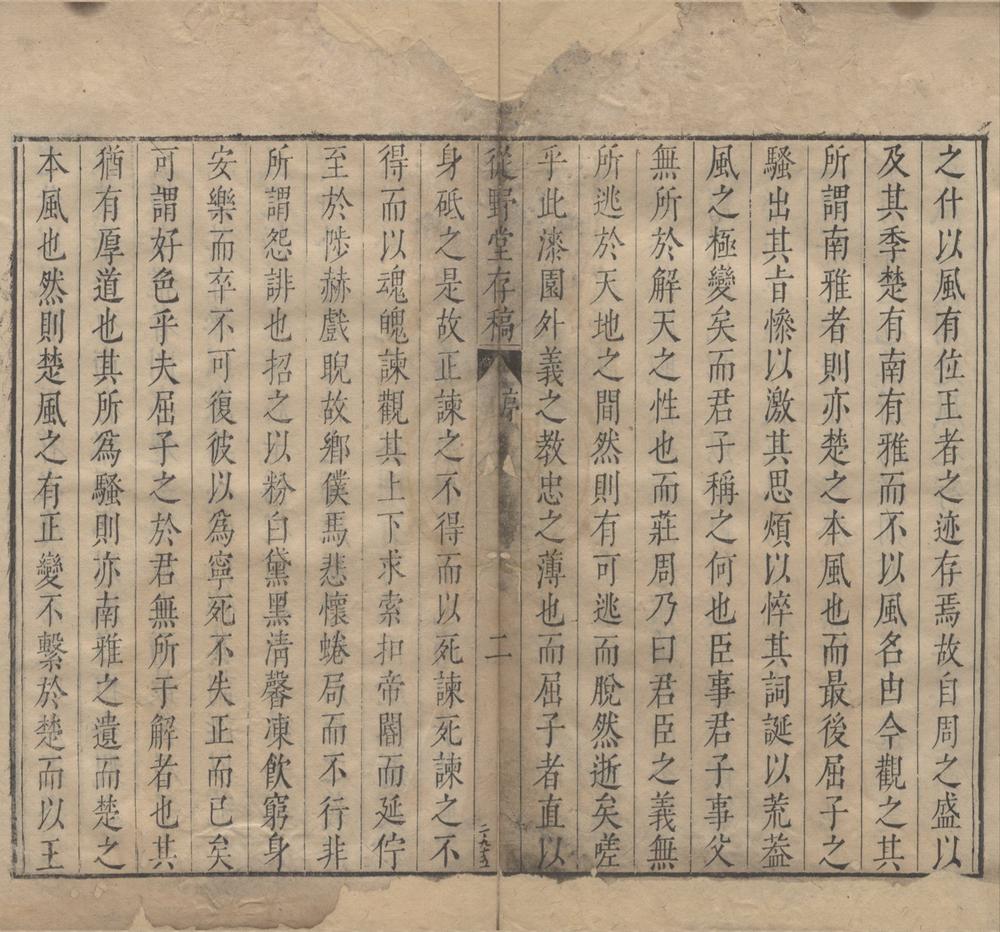 之什以風有位王者之迹存焉故自周之盛以
及其季楚有南有雅而不以風名由今觀之其
所謂南雅者則亦楚之本風也而最後屈子之
騷出其旨慘以激其思煩以悴其詞誕以荒蓋
風之極變矣而君子稱之何也臣事君子事父
無所於解天之性也而莊周乃曰君臣之義無
所逃於天地之間然則有可逃而脫然逝矣嗟
乎此漆園外義之教忠之薄也而屈子者直以
從野堂存稿 序 二
身砥之是故正諫之不得而以死諫死諫之不
得而以魂魄諫觀其上下求索扣帝閽而延佇
至於陟赫戲睨故鄉僕馬悲懷蜷局而不行非
所謂怨誹也招之以粉白黛黑清馨凍飲窮身
安樂而卒不可復彼以為寧死不失正而已矣
可謂好色乎夫屈子之於君無所于解者也其
猶有厚道也其所為騷則亦南雅之遺而楚之
本風也然則楚風之有正變不繫於楚而以王